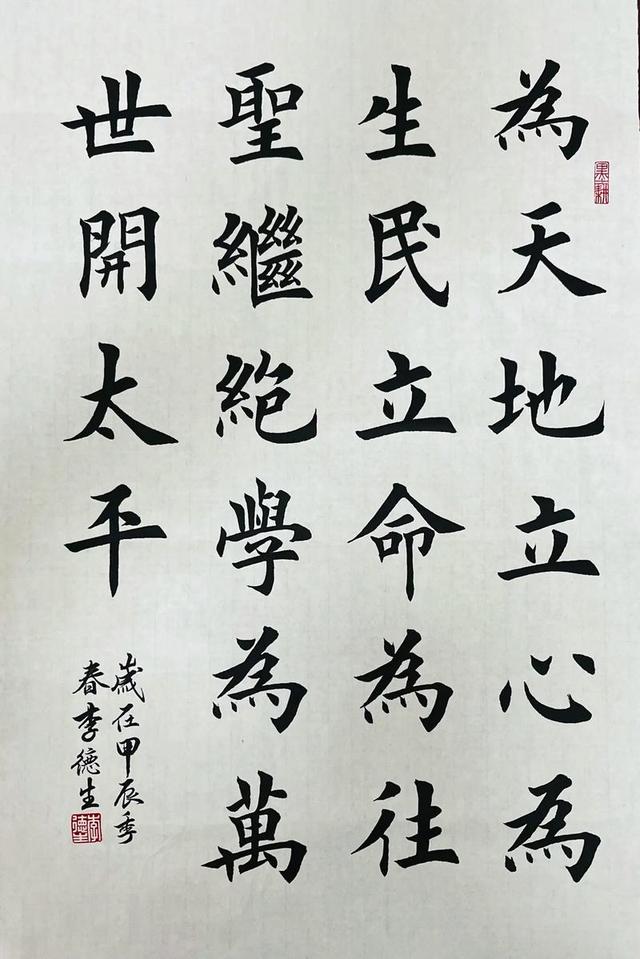 為天地立心為
生民立命為往
聖繼絕學為萬
世開太平
歲在甲辰季
春李德生